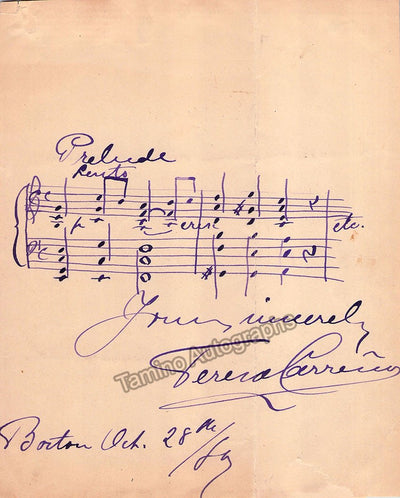 Prelude
Lento
p cresc etc.
Yours sincerely
Tamino Autographs
Teresa Carreño
Boston Oct. 28th